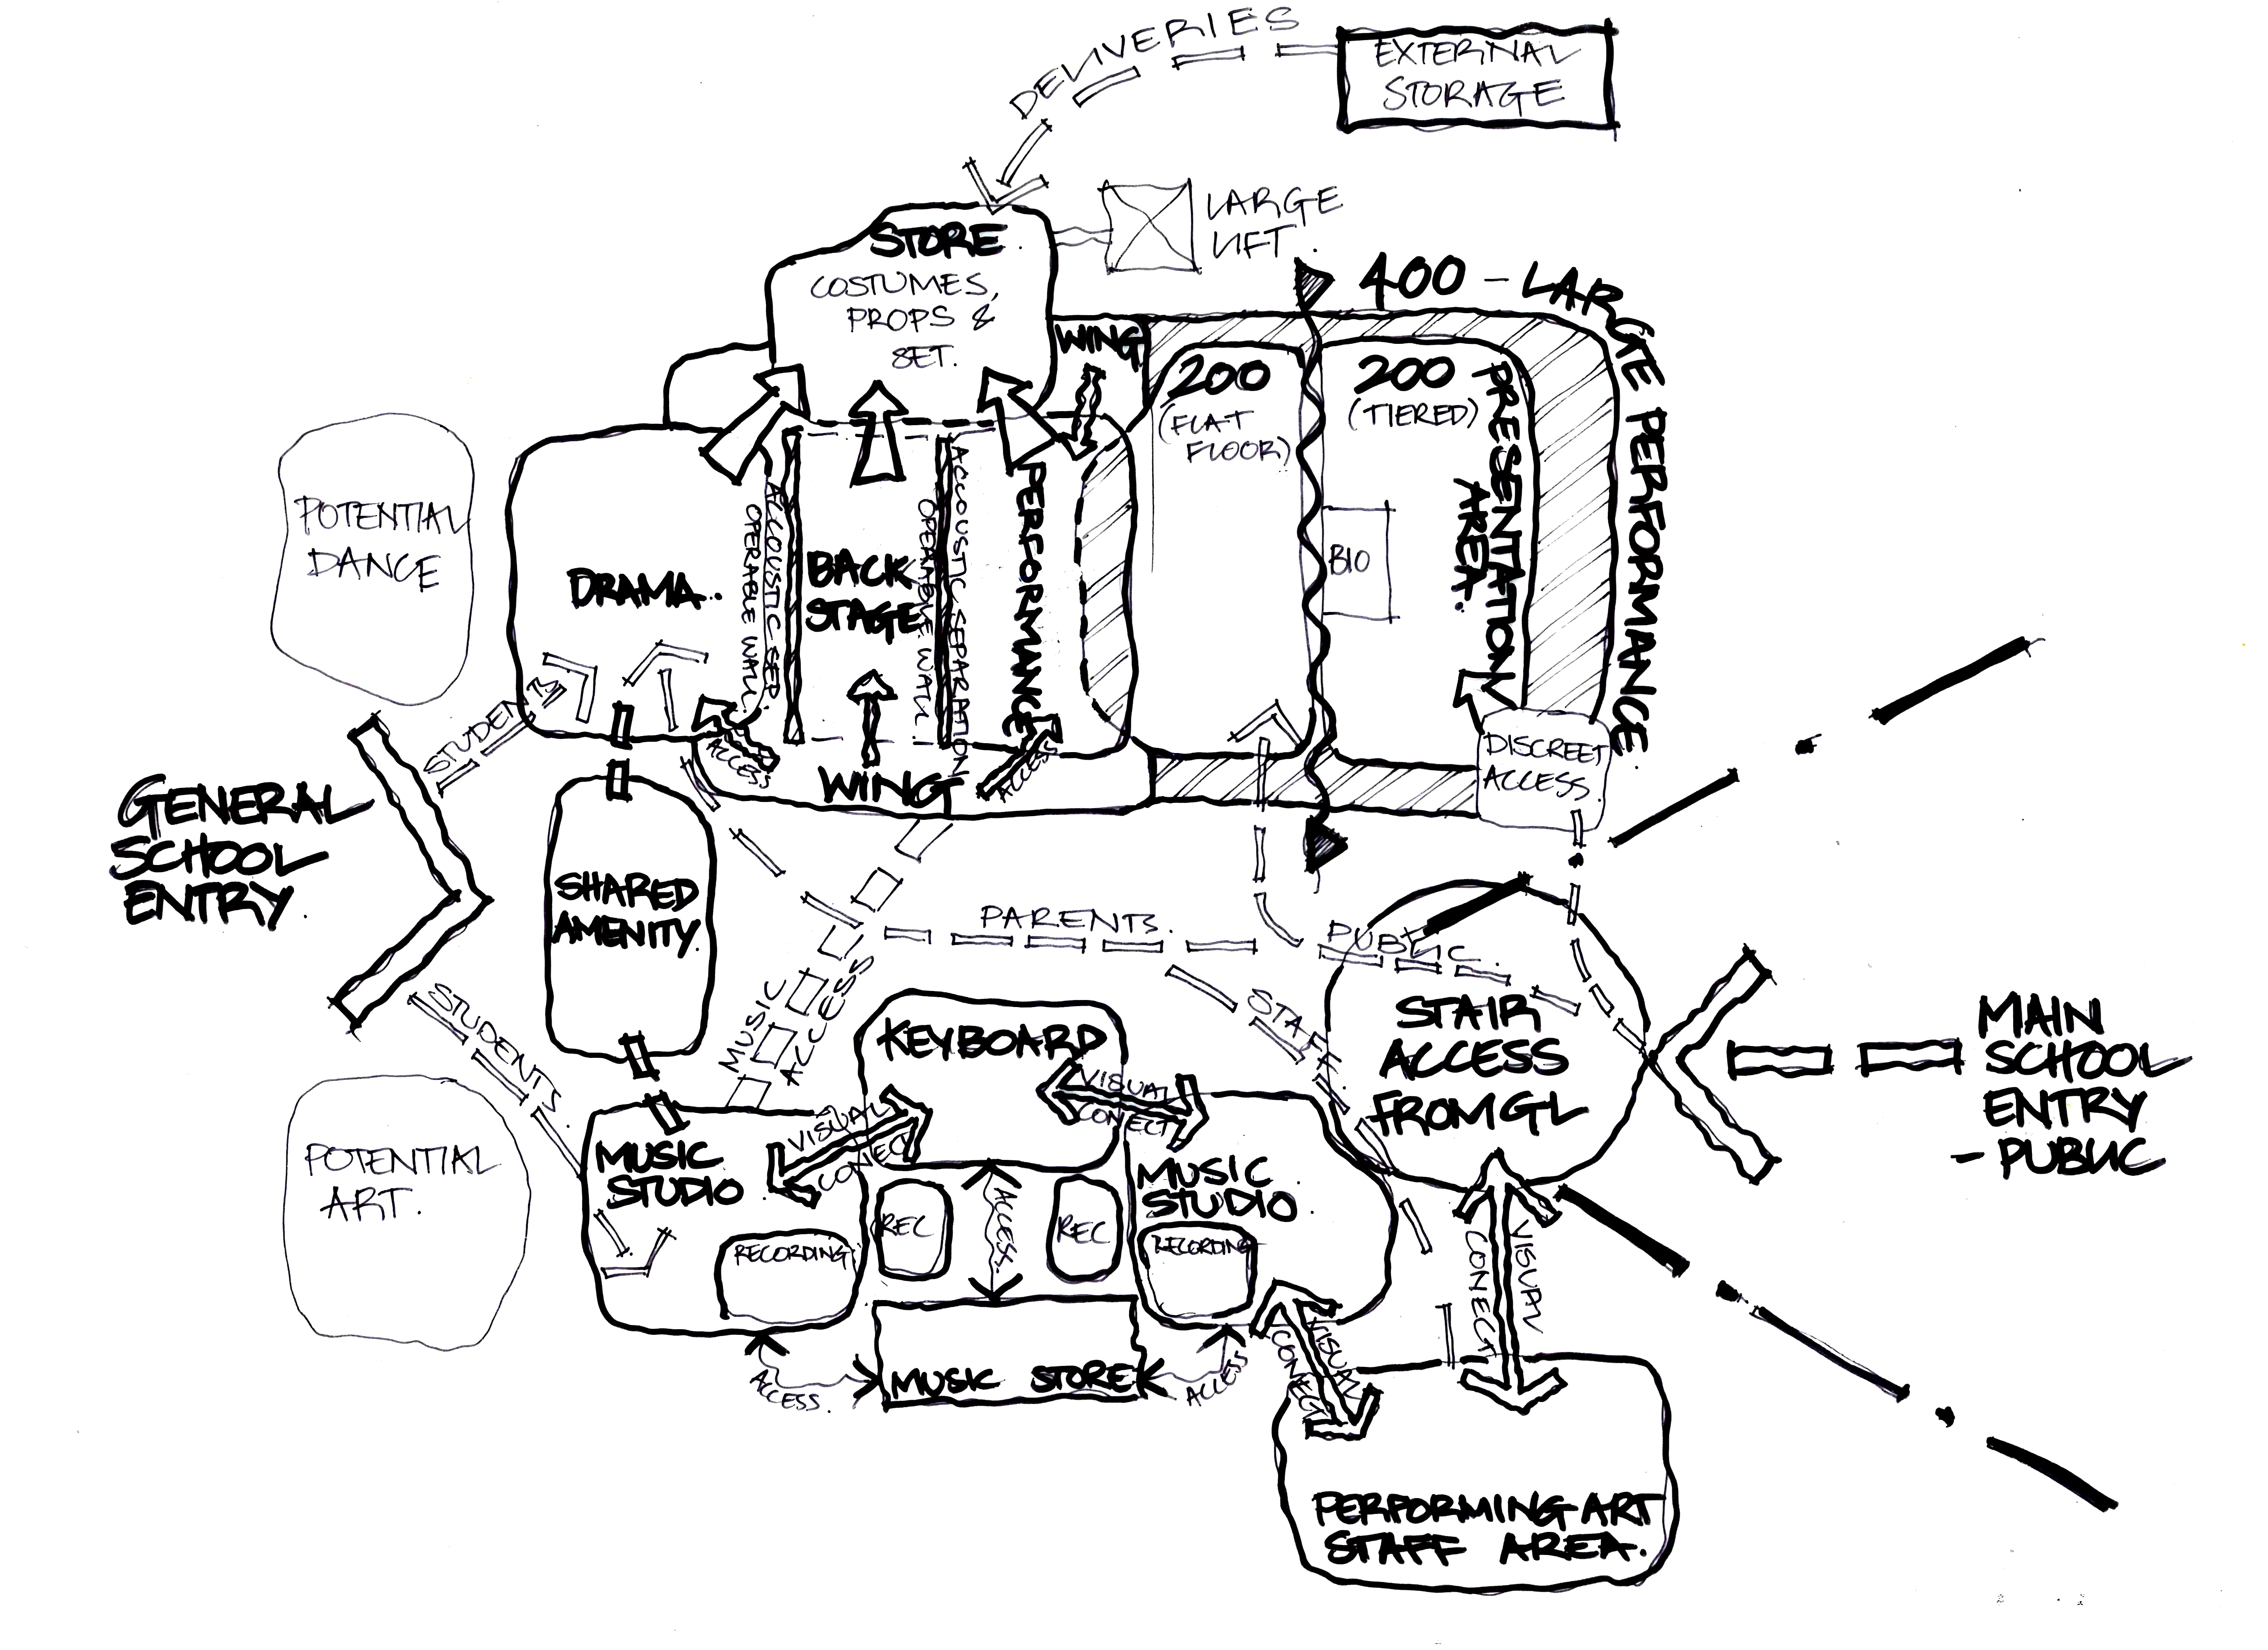 DELIVERIES
EXTERNAL
STORAGE
LARGE
LIFT.
STORE.
COSTUMES,
PROPS &
SET.
400 - LARGE PERFORMANCE.
WING
200
(FLAT
FLOOR)
200
(TIERED)
PRESENTATION
AREA.
BIO
POTENTIAL
DANCE
DRAMA.
ACCOUSTIC SEP.
OPERABLE WALL.
BACK
STAGE
ACCOUSTIC SEPARATION
OPERABLE WALL.
PERFORMANCE
STUDENTS
ACCESS
WING
ACCESS
DISCREET
ACCESS.
GENERAL
SCHOOL
ENTRY.
SHARED
AMENITY.
PARENTS.
PUBLIC.
STAFF.
MUSIC
ACCESS
STUDENTS
KEYBOARD
VISUAL
CONECT
VISUAL
CONECT
STAIR
ACCESS
FROM GL
MAIN
SCHOOL
ENTRY
- PUBLIC
POTENTIAL
ART.
MUSIC
STUDIO
RECORDING
REC
ACCESS.
REC
MUSIC
STUDIO.
RECORDING
VISUAL
CONECT
MUSIC STORE
ACCESS.
ACCESS
VISUAL
CONECT
PERFORMING ART
STAFF AREA.